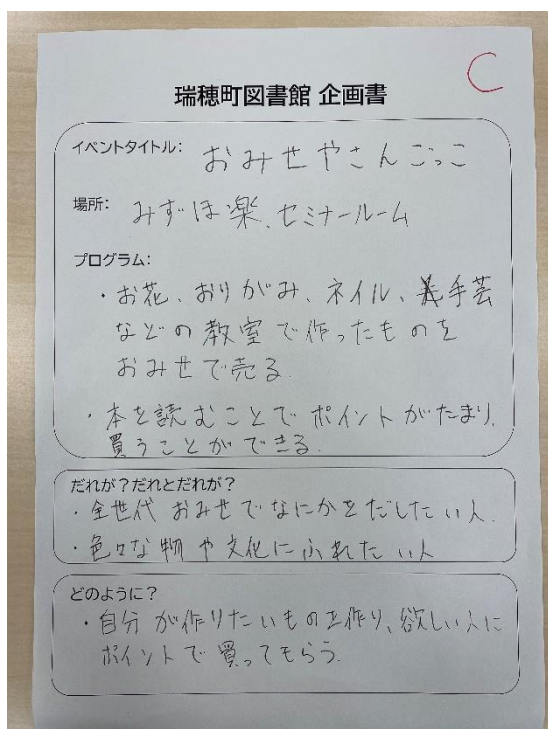 C
瑞穂町図書館 企画書
イベントタイトル: おみせやさんごっこ
場所: みずほ楽、セミナールーム
プログラム:
・お花、おりがみ、ネイル、手芸
などの教室で作ったものを
おみせで売る.
・本を読むことでポイントがたまり、
買うことができる.
だれが?だれとだれが?
・全世代 おみせでなにかをだしたい人.
・色々な物や文化にふれたい人
どのように?
・自分が作りたいものを作り、欲しい人に
ポイントで買ってもらう.